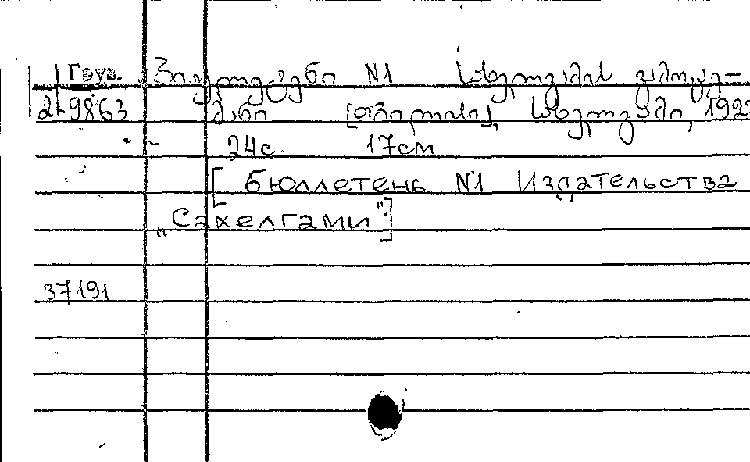 Груз. ბიულეტენი N1 სახელგამის გამოცე-
2-9863 მანი [თბილისი], სახელგამი, 192
24с. 17см
[Бюллетень N1 Издательства
„Сахелгами"]
37191